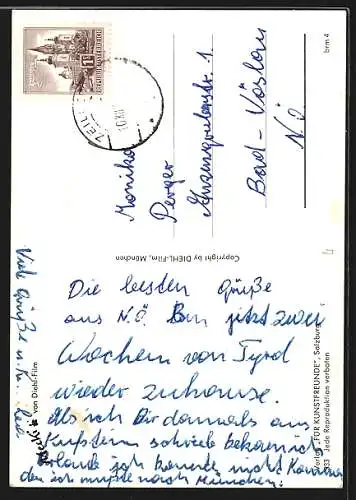 Monika
Perger
Anzengruberstr. 1
Bad-Vöslau
N.Ö.
Die besten Grüße
aus N.Ö. Bin jetzt zwei
Wochen von Tyrol
wieder zuhause.
Als ich Dir damals aus
Kufstein schrieb bekam ich
Urlaub ich konnte nicht kommen
den ich mußte nach München.
Viele Grüße u. Ku.
von Diehl-Film
Copyright by DIEHL-Film, München
Verlag „FÜR KUNSTFREUNDE“, Salzburg
833 Jede Reproduktion verboten
brm 4
4
REPUBLIK ÖSTERREICH